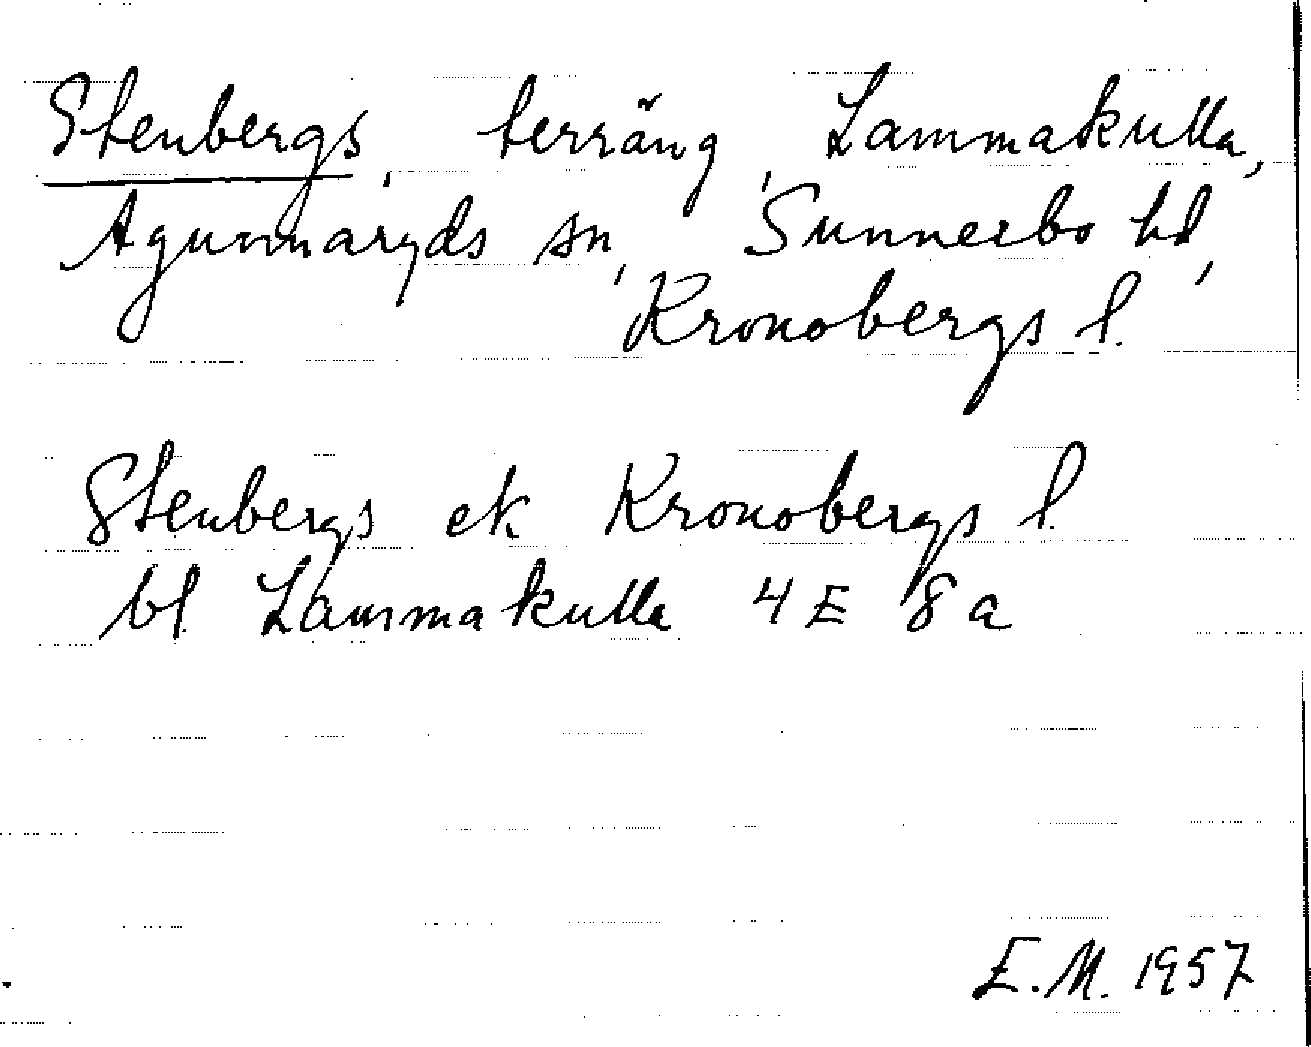 Stenbergs, terräng, Lammakulla,
Agunnaryds sn, Sunnerbo hd,
Kronobergs l.
Stenbergs ek Kronobergs l.
bl. Lammakulla 4E 8a
E.M. 1957